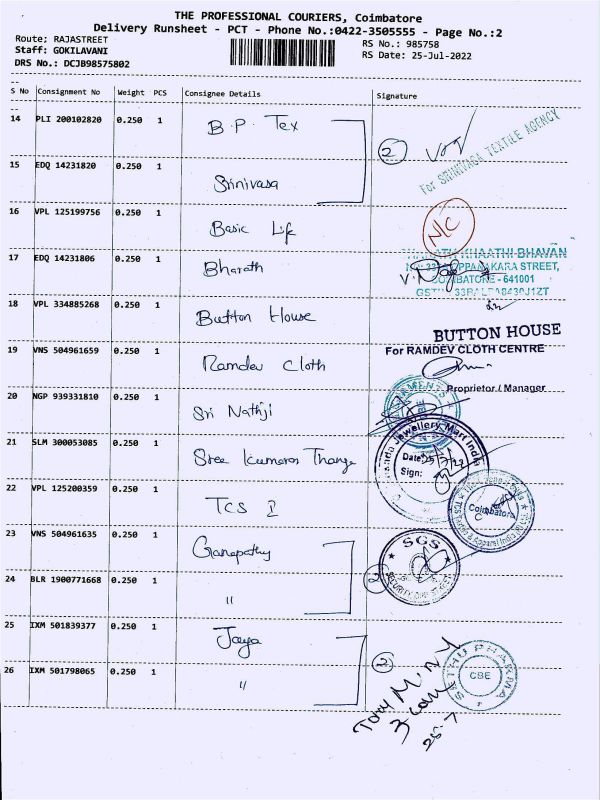 THE PROFESSIONAL COURIERS, Coimbatore
Delivery Runsheet - PCT - Phone No.:0422-3505555 - Page No.:2
Route: RAJASTREET
RS No.: 985758
Staff: GOKILAVANI
RS Date: 25-Jul-2022
DRS No.: DCJB98575802
S No Consignment No Weight PCS Consignee Details Signature
14 PLI 200102820 0.250 1 B.P. Tex
2
For SRINIVASA TEXTILE AGENCY
15 EDQ 14231820 0.250 1 Srinivasa
16 VPL 125199756 0.250 1 Basic Life
N/C
17 EDQ 14231806 0.250 1 Bharath
KHAATHI BHAVAN
OPPANAKARA STREET,
COIMBATORE - 641001
18 VPL 334885268 0.250 1 Button House
BUTTON HOUSE
19 VNS 504961659 0.250 1 Ramdev Cloth
For RAMDEV CLOTH CENTRE
Proprietor / Manager
20 NGP 939331810 0.250 1 Sri Nathji
21 SLM 300053085 0.250 1 Sree Kumaran Thanga
Jewellery Mart India
Date:
Sign:
22 VPL 125200359 0.250 1 TCS I
Coimbatore
23 VNS 504961635 0.250 1 Ganapathy
SGS
SECURITY
24 BLR 1900771668 0.250 1 "
2
25 IXM 501839377 0.250 1 Jaya
2
26 IXM 501798065 0.250 1 "
CBE
25-7